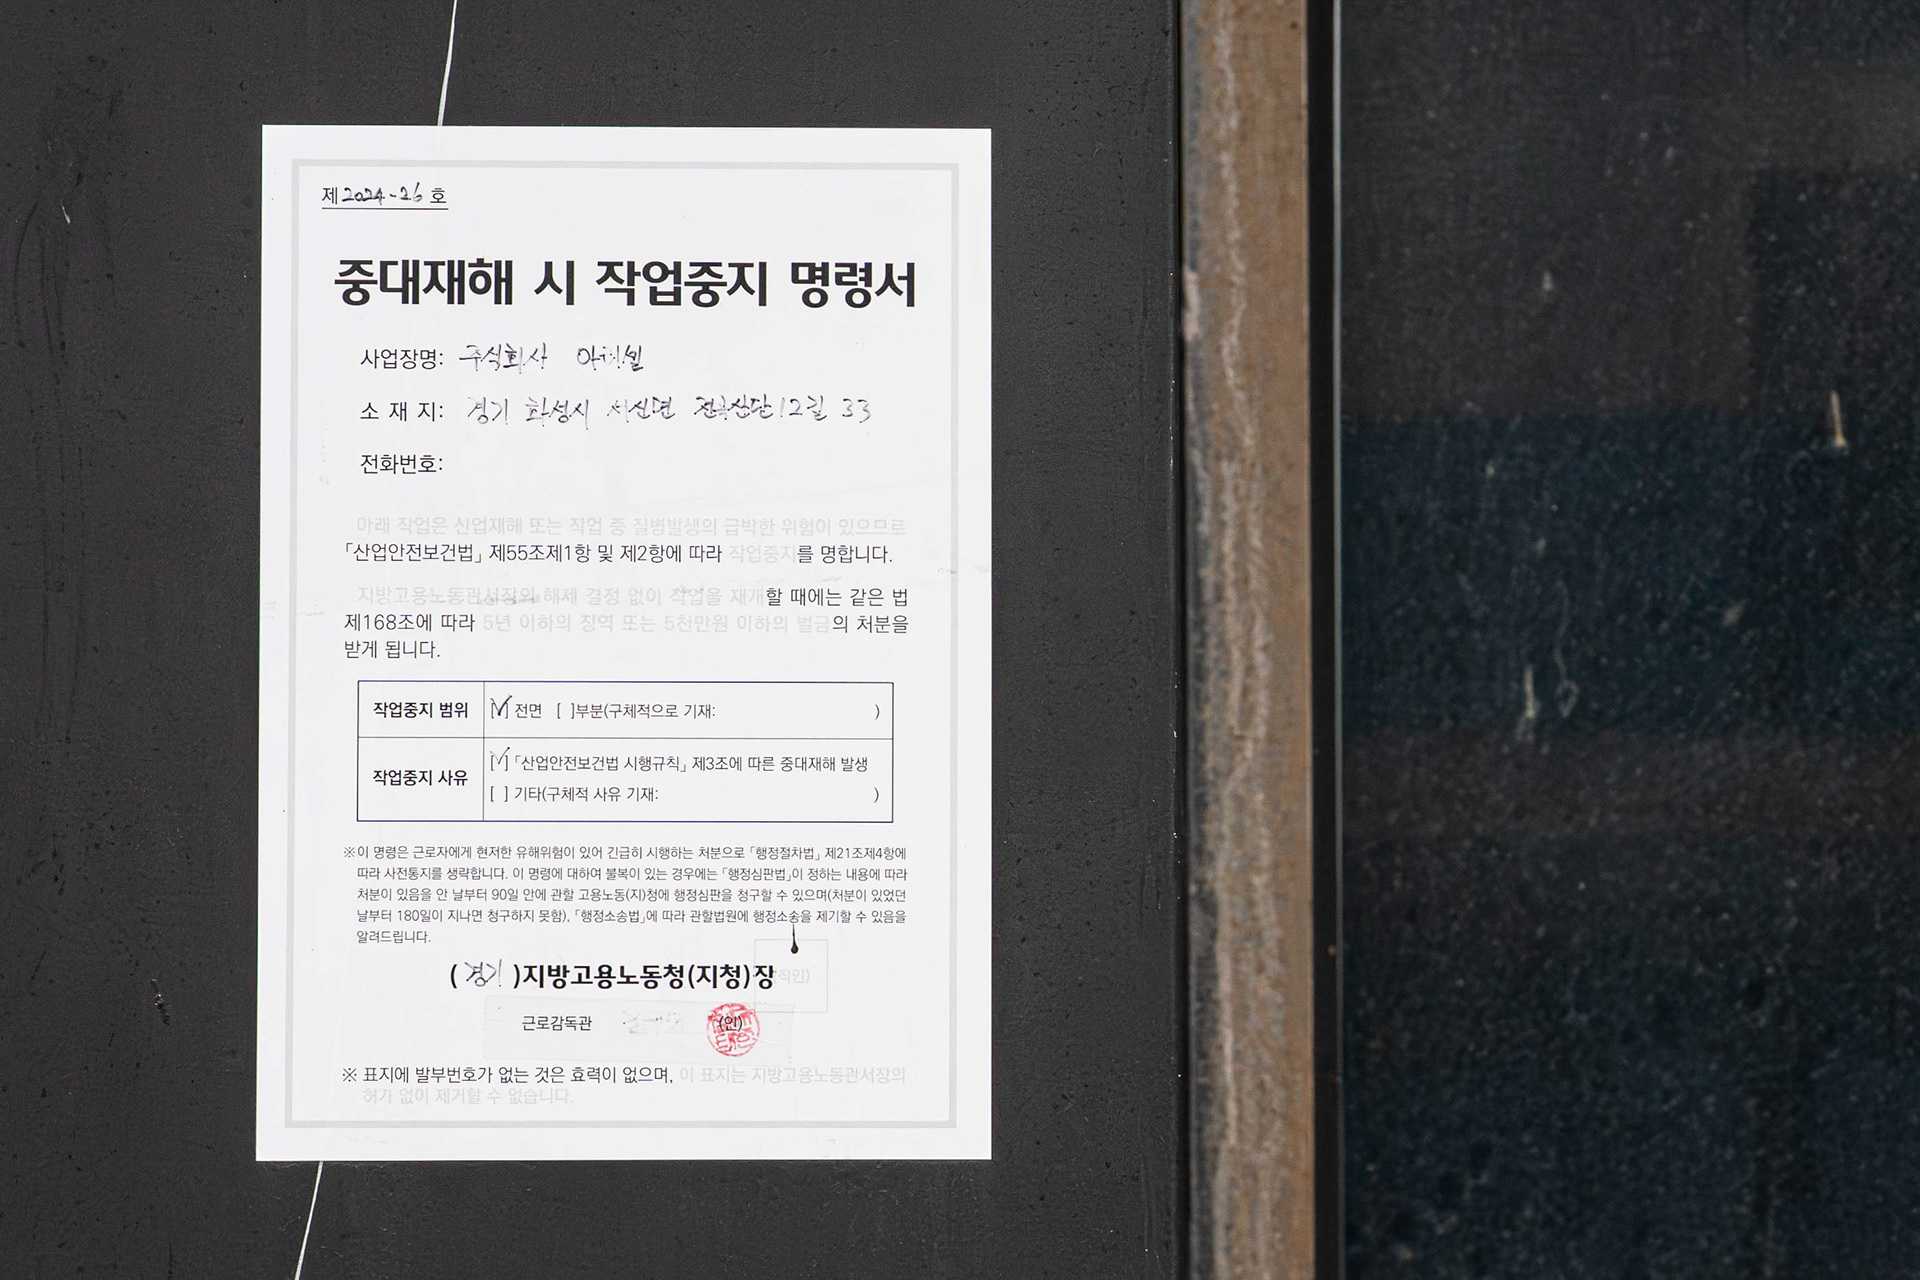 제2024-26호
중대재해 시 작업중지 명령서
사업장명: 주식회사 아리셀
소 재 지: 경기 화성시 서신면 전곡산단12길 33
전화번호:
아래 작업은 산업재해 또는 작업 중 질병발생의 급박한 위험이 있으므로
「산업안전보건법」 제55조제1항 및 제2항에 따라 작업중지를 명합니다.
지방고용노동관서장의 해제 결정 없이 작업을 재개할 때에는 같은 법
제168조에 따라 5년 이하의 징역 또는 5천만원 이하의 벌금의 처분을
받게 됩니다.
작업중지 범위 [✓] 전면 [ ]부분(구체적으로 기재: )
작업중지 사유 [✓]「산업안전보건법 시행규칙」 제3조에 따른 중대재해 발생
[ ] 기타(구체적 사유 기재: )
※이 명령은 근로자에게 현저한 유해위험이 있어 긴급히 시행하는 처분으로 「행정절차법」 제21조제4항에
따라 사전통지를 생략합니다. 이 명령에 대하여 불복이 있는 경우에는 「행정심판법」이 정하는 내용에 따라
처분이 있음을 안 날부터 90일 안에 관할 고용노동(지)청에 행정심판을 청구할 수 있으며(처분이 있었던
날부터 180일이 지나면 청구하지 못함), 「행정소송법」에 따라 관할법원에 행정소송을 제기할 수 있음을
알려드립니다.
(경기)지방고용노동청(지청)장 (직인)
근로감독관 (인)
※ 표지에 발부번호가 없는 것은 효력이 없으며, 이 표지는 지방고용노동관서장의
허가 없이 제거할 수 없습니다.